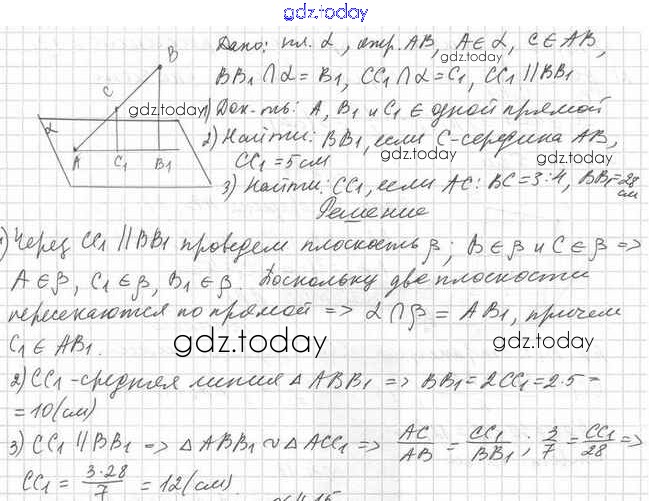 gdz.today
Дано: пл. α, отр. AB, A ∈ α, C ∈ AB,
BB₁ ∩ α = B₁, CC₁ ∩ α = C₁, CC₁ // BB₁
gdz.today
1) Док-ть: A, B₁ и C₁ ∈ одной прямой
2) Найти: BB₁, если C-середина AB,
gdz.today
CC₁ = 5 см
gdz.today
3) Найти: CC₁, если AC : BC = 3 : 4, BB₁ = 28 см
B
C
α
A C₁ B₁
Решение
1) Через CC₁ // BB₁ проведем плоскость β; B ∈ β и C ∈ β =>
A ∈ β, C₁ ∈ β, B₁ ∈ β. Поскольку две плоскости
gdz.today
пересекаются по прямой => α ∩ β = AB₁, причем
C₁ ∈ AB₁.
gdz.today gdz.today
2) CC₁-средняя линия △ ABB₁ => BB₁ = 2CC₁ = 2·5 =
= 10 (см)
3) CC₁ // BB₁ => △ ABB₁ ∾ △ ACC₁ => AC/AB = CC₁/BB₁; 3/7 = CC₁/28 =>
CC₁ = 3·28/7 = 12 (см)